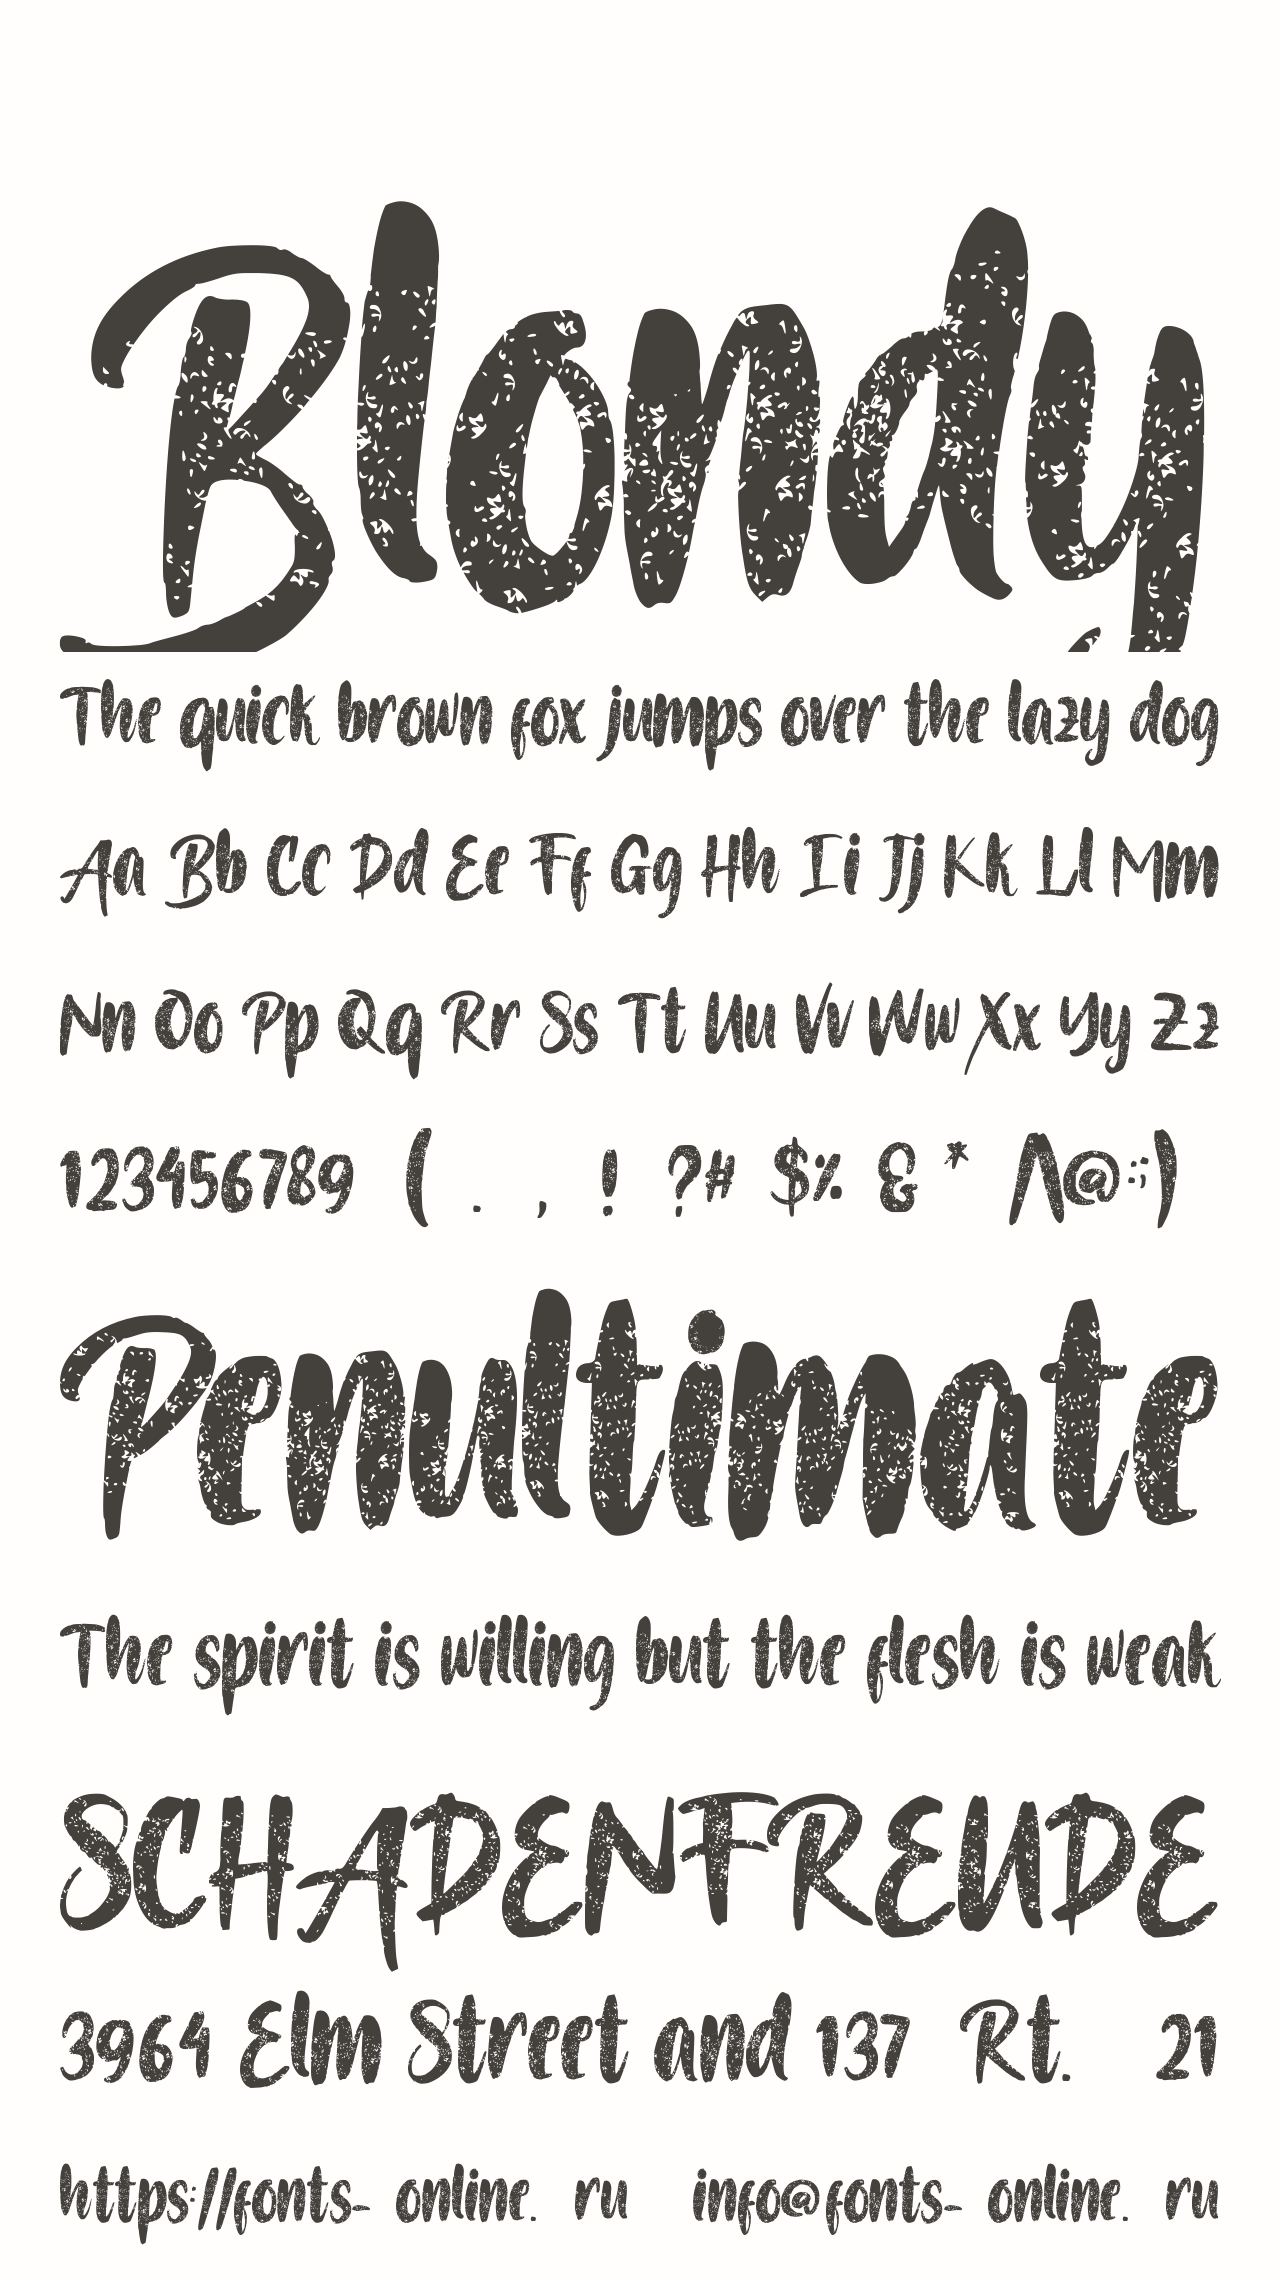 Blondy
The quick brown fox jumps over the lazy dog
Aa Bb Cc Dd Ee Ff Gg Hh Ii Jj Kk Ll Mm
Nn Oo Pp Qq Rr Ss Tt Uu Vv Ww Xx Yy Zz
123456789 ( . , ! ?# $% & * /\@:;)
Penultimate
The spirit is willing but the flesh is weak
SCHADENFREUDE
3964 Elm Street and 137 Rt. 21
https://fonts- online. ru info@fonts- online. ru